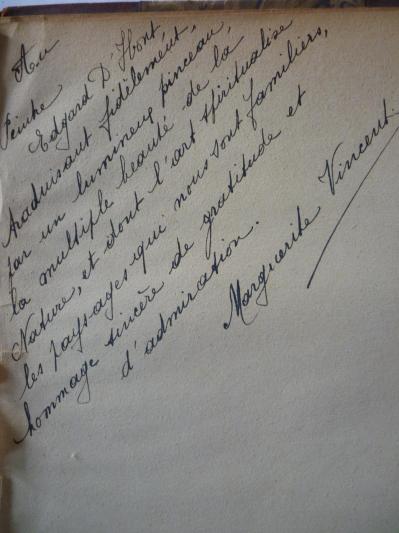 Au
Peintre Edgard D'Hont
traduisant fidèlement,
par un lumineux pinceau,
la multiple beauté de la
Nature, et dont l'art spiritualise
les paysages qui nous sont familiers,
hommage sincère de gratitude et
d'admiration.
Marguerite Vincent.